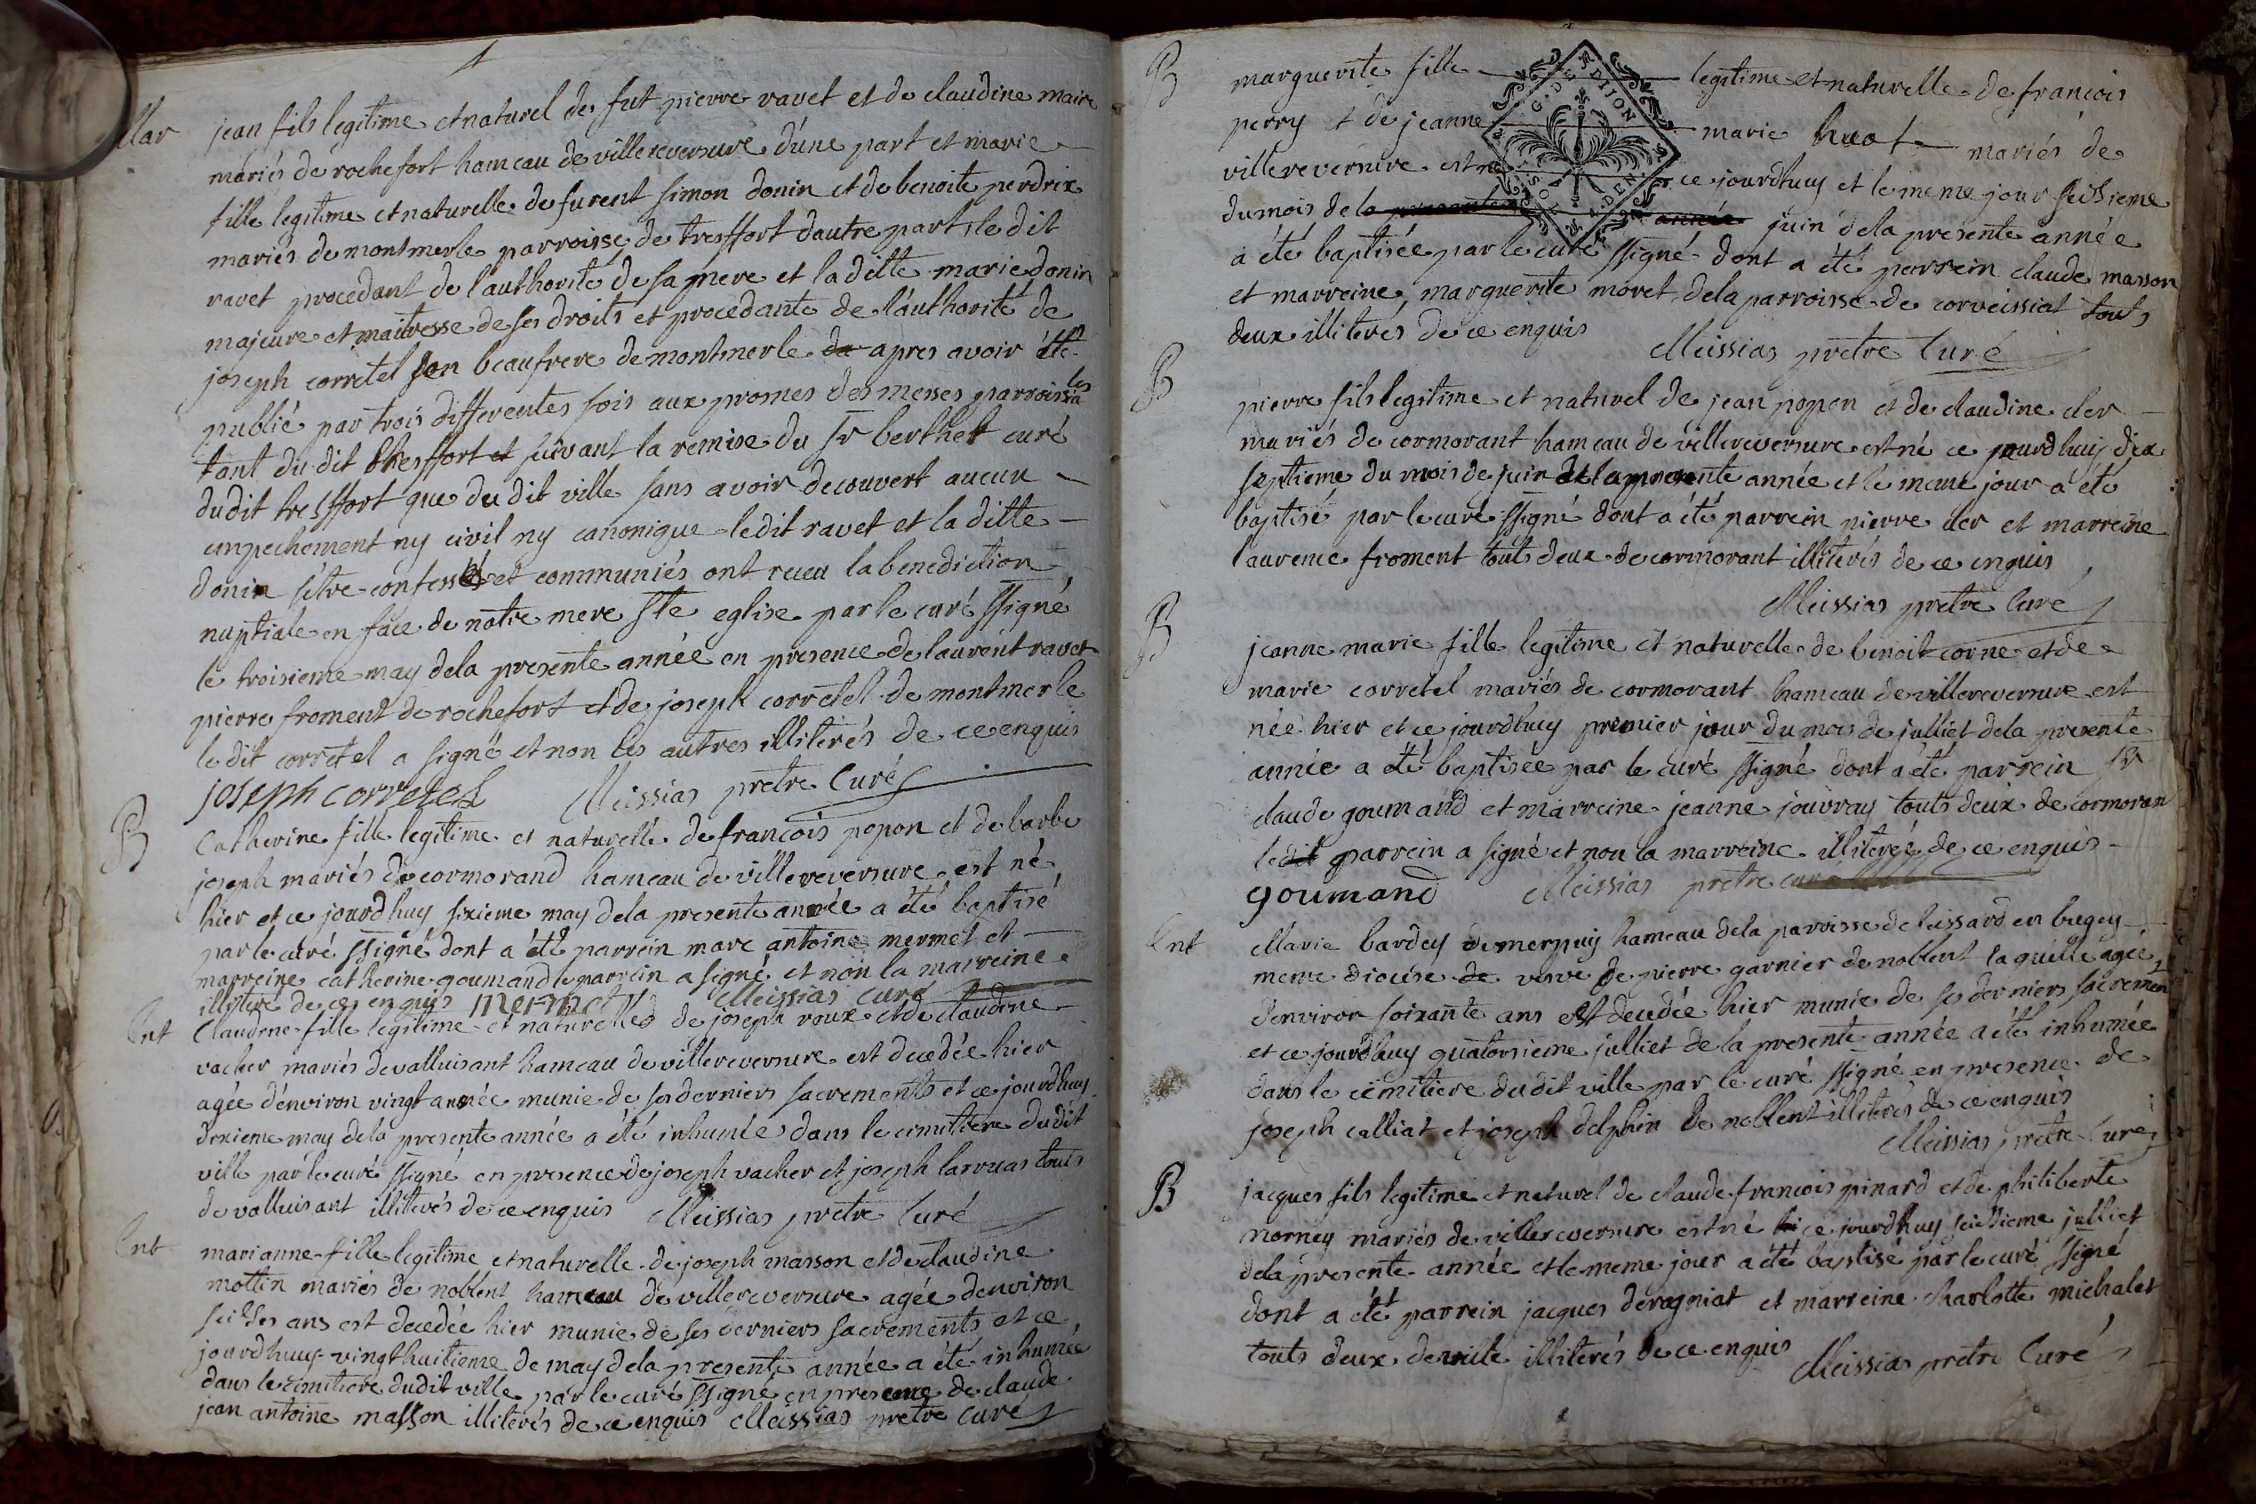 Mar
jean fils legitime et naturel de fut pierre ravet et de claudine maire
mariés de rochefort hameau de villereversure d'une part et marie
fille legitime et naturelle de furent simon donin et de benoite perdrix
mariés de montmerle parroisse de tresffort dautre part, le dit
ravet procedant de l'authorité de sa mere et la ditte marie donin
majeure et maitresse de ses droits et procedante de l'authorité de
joseph corretel son beaufrere de montmerle apres avoir été
publié par trois differentes fois aux promes des messes parroissia
les
tant du dit tresffort suivant la remise du Sr berthet curé
dudit tresffort que du dit ville sans avoir decouvert aucun
empechement ny civil ny canonique ledit ravet et la ditte
donin s'être confessés et communiés ont receu la benediction
nuptiale en face de notre mere Ste eglise par le curé ssigné
le troisieme may dela presente année en presence de laurent ravet
pierre froment de rochefort et de joseph corretel de montmerle
le dit corretel a signé et non les autres illiterés de ce enquis
joseph corretel Meissias pretre Curé
B
Catherine fille legitime et naturelle de francois popon et de barbe
joseph mariés de cormorand hameau de villereversure est né
hier et ce jourdhuy sixieme may dela presente année a été baptisé
par le curé ssigné dont a été parrein marc antoine mermet et
marreine catherine goumand le parrein a signé et non la marreine
illitere de ce enquis mermet Meissias curé
Ent
Claudine fille legitime et naturelle de joseph roux et de claudine
vacher mariés de valluisant hameau de villereversure est decedée hier
agée d'environ vingt année munie de ses derniers sacrements et ce jourdhuy
dixieme may dela presente année a été inhumée dans le cimitiere dudit
ville par le curé ssigné en presence de joseph vacher et joseph larruas touts
de valluisant illiterés de ce enquis Meissias pretre Curé
Ent
marianne fille legitime et naturelle de joseph masson et de claudine
mottin mariés de noblent hameau de villereversure agée denviron
seidses ans est decedée hier munie de ses derniers sacrements et ce
jourdhuy vingt huitieme de may dela presente année a été inhumée
dans le cimitiere dudit ville par le curé ssigné en presence de claude
jean antoine masson illiterés de ce enquis Meissias pretre Curé
B
marguerite fille legitime et naturelle de francois
perry et de jeanne marie huot mariés de
villereversure est né ce jourdhuy et le meme jour seidsieme
du mois de la presente année juin dela presente année
a été baptisée par le curé ssigné dont a été parrein claude masson
et marreine marguerite moret dela parroisse de corveissiat touts
deux illiterés de ce enquis
Meissias pretre Curé
G. DE DIJON
B
pierre fils legitime et naturel de jean popon et de claudine der
mariés de cormorant hameau de villereversure est né ce jourdhuy dix
septieme du mois de juin de la presente année et le meme jour a été
baptisé par le curé ssigné dont a été parrein pierre der et marreine
laurence froment touts deux de cormorant illiterés de ce enquis
Meissias pretre Curé
B
jeanne marie fille legitime et naturelle de benoit corne et de
marie corretel mariés de cormorant hameau de villereversure est
née hier et ce jourdhuy premier jour du mois de julliet dela presente
année a été baptisée par le curé ssigné dont a été parrein Sr
claude goumand et marreine jeanne jouvray touts deux de cormoran
ledit parrein a signé et non la marreine illiterée de ce enquis
goumand Meissias pretre curé
Ent
Marie bardey de merpuy hameau dela paroisse de leissard en bugey
meme diocèse de veuve de pierre garnier de noblent laquelle agée
d'environ soixante ans est decedée hier munie de ses derniers sacrement
et ce jourdhuy quatorsieme julliet de la presente année a été inhumée
dans le cimitiere dudit ville par le curé ssigné en presence de
joseph calliat et joseph delphin de noblent illiterés de ce enquis
Meissias pretre Curé
B
jacques fils legitime et naturel de claude francois pinard et de philiberte
morney mariés de villereversure est né ce jourdhuy seidsieme julliet
dela presente année et le meme jour a été baptisé par le curé ssigné
dont a été parrein jacques deragniat et marreine charlotte michalet
touts deux de ville illiterés de ce enquis
Meissias pretre Curé